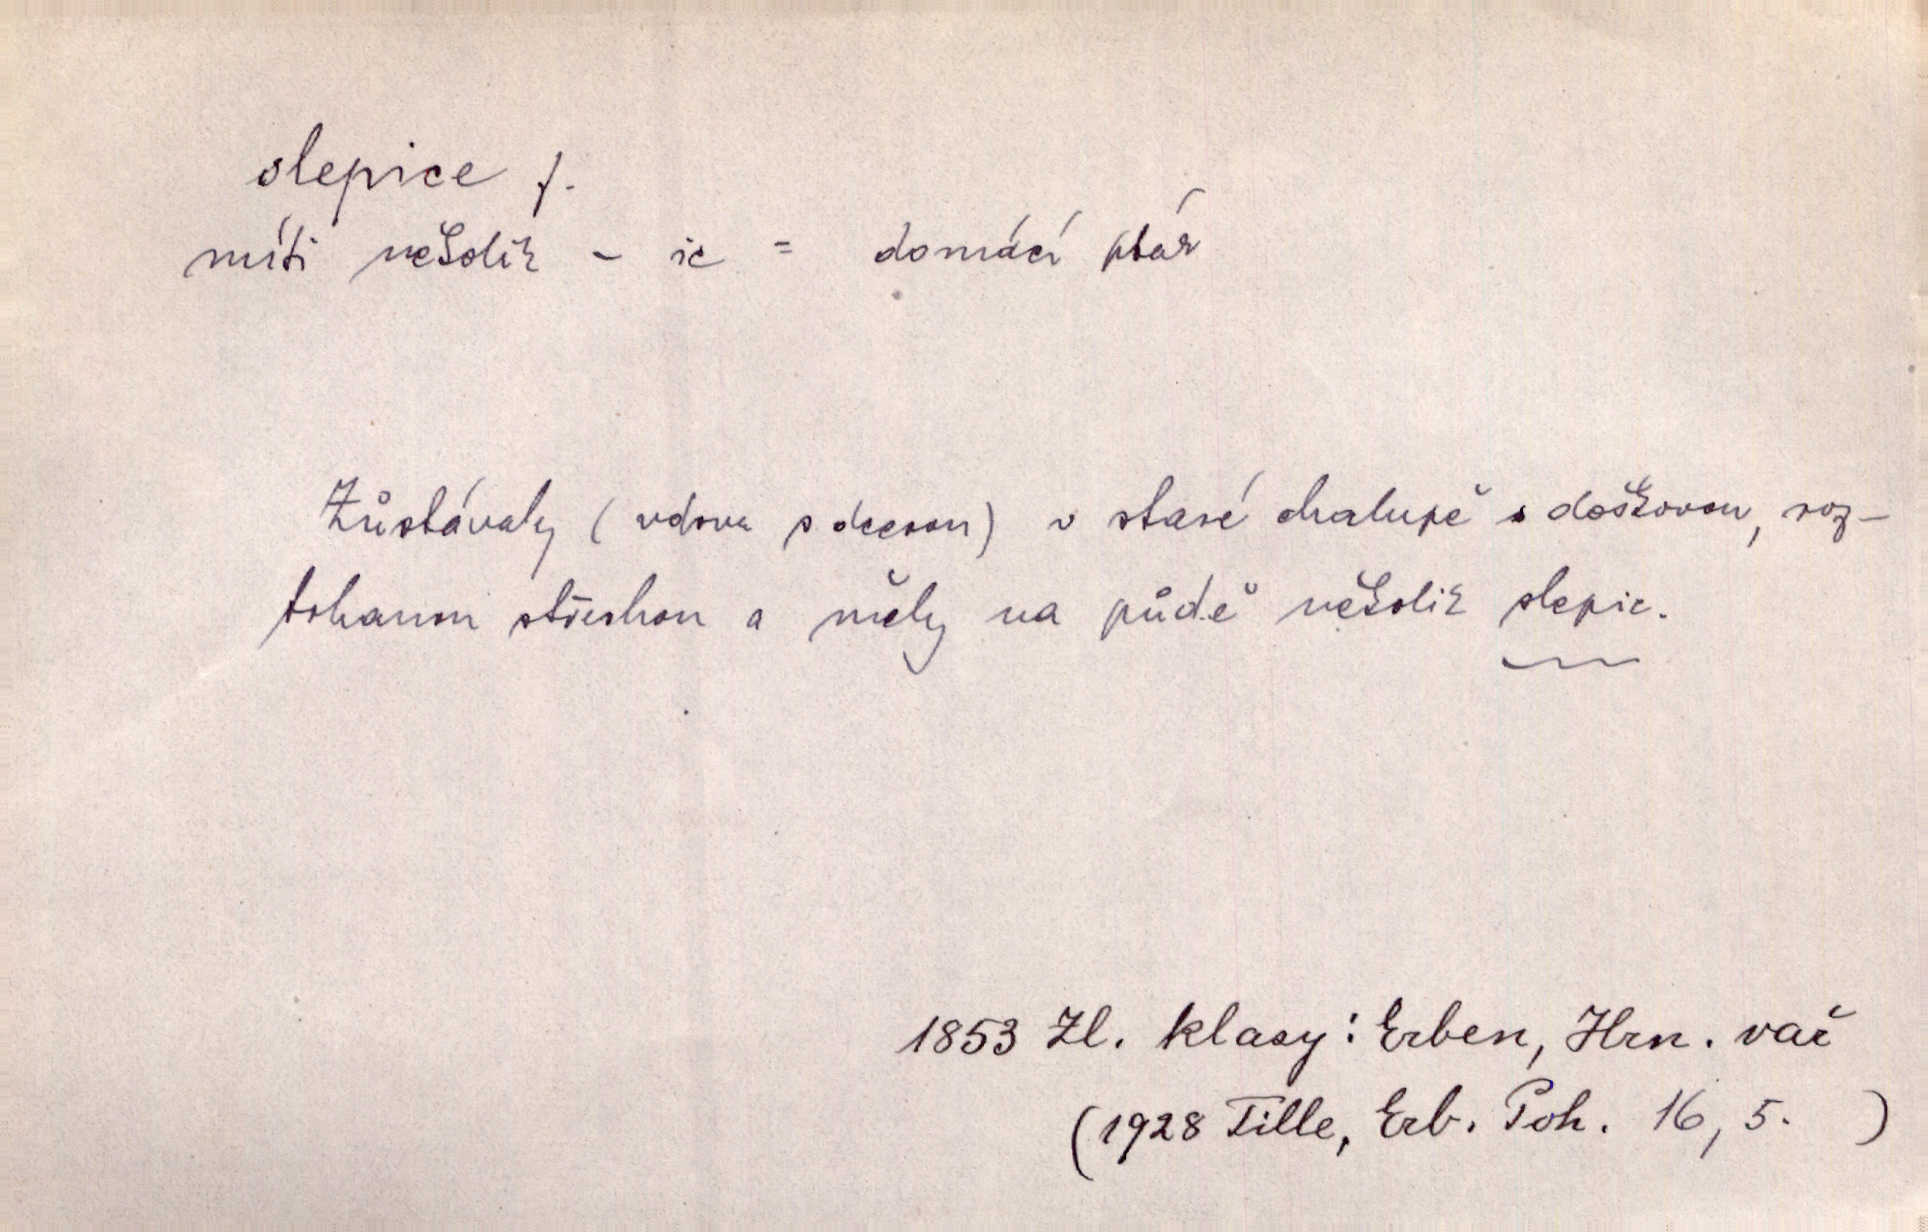 slepice f.
míti několik - ic = domácí pták
Zůstávaly (vdova s dcerou) v staré chalupě s doškovou, roz-
trhanou střechou a měly na půdě několik slepic.
1853 Zl. klasy: Erben, Hrn. vař
(1928 Tille, Erb. Poh. 16, 5. )